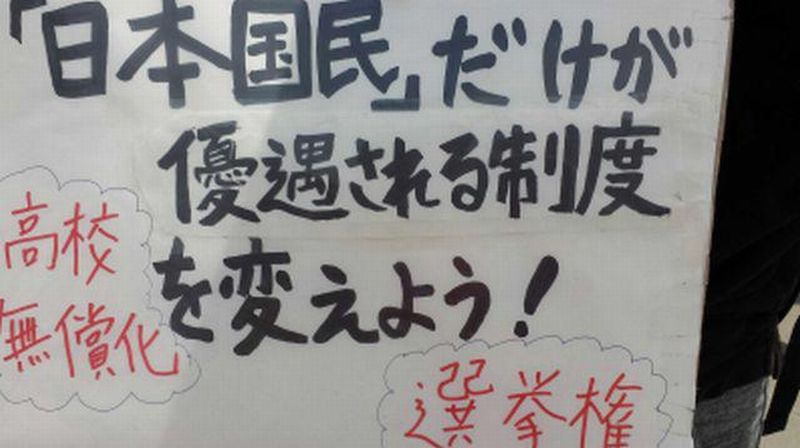 「日本国民」だけが
優遇される制度
を変えよう!
高校
無償化
選挙権